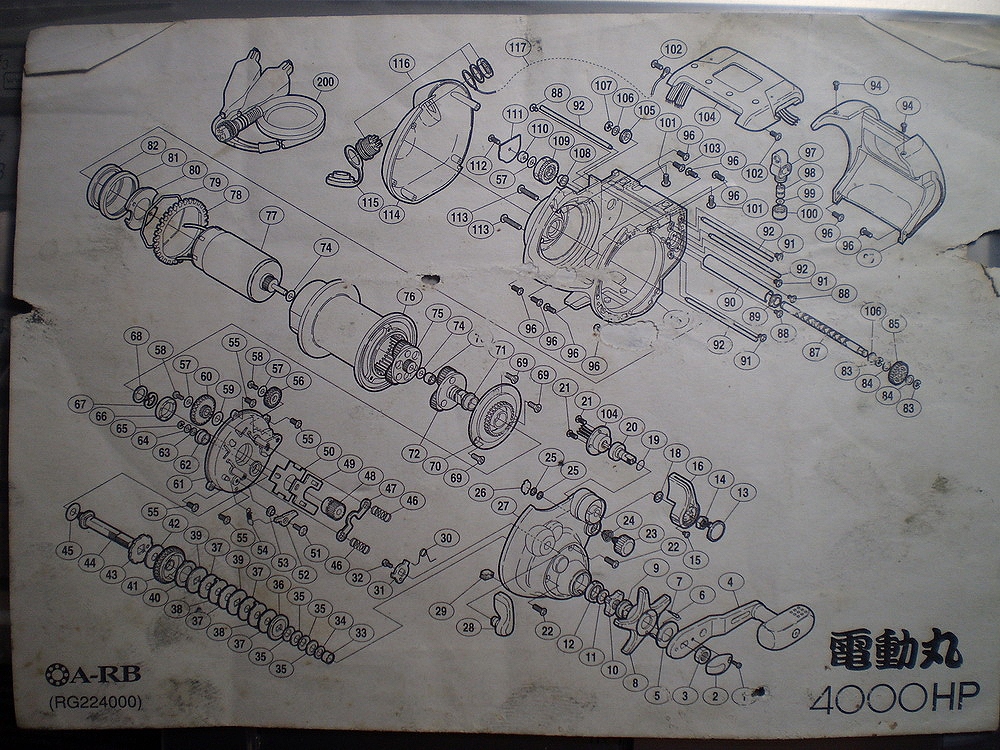 117
116
102
200
88
92
107
106
105
101
104
96
103
96
94
94
111
110
109
108
112
57
113
113
115
114
102
97
98
99
100
96
101
96
96
92
91
92
91
88
90
89
88
87
92
91
106
85
83
84
84
83
96
96
96
96
82
81
80
79
78
77
74
76
75
74
71
69
69
72
70
69
68
58
57
60
59
55
58
57
56
67
66
65
64
63
62
61
55
50
49
48
47
46
55
42
39
37
39
37
36
35
35
34
33
55
54
53
52
51
46
32
31
30
45
44
43
41
40
38
37
38
37
35
35
21
21
104
20
19
18
16
14
13
25
25
26
27
24
23
22
15
29
28
22
12
11
10
9
7
6
4
8
5
3
2
1
A-RB
(RG224000)
電動丸
4000HP